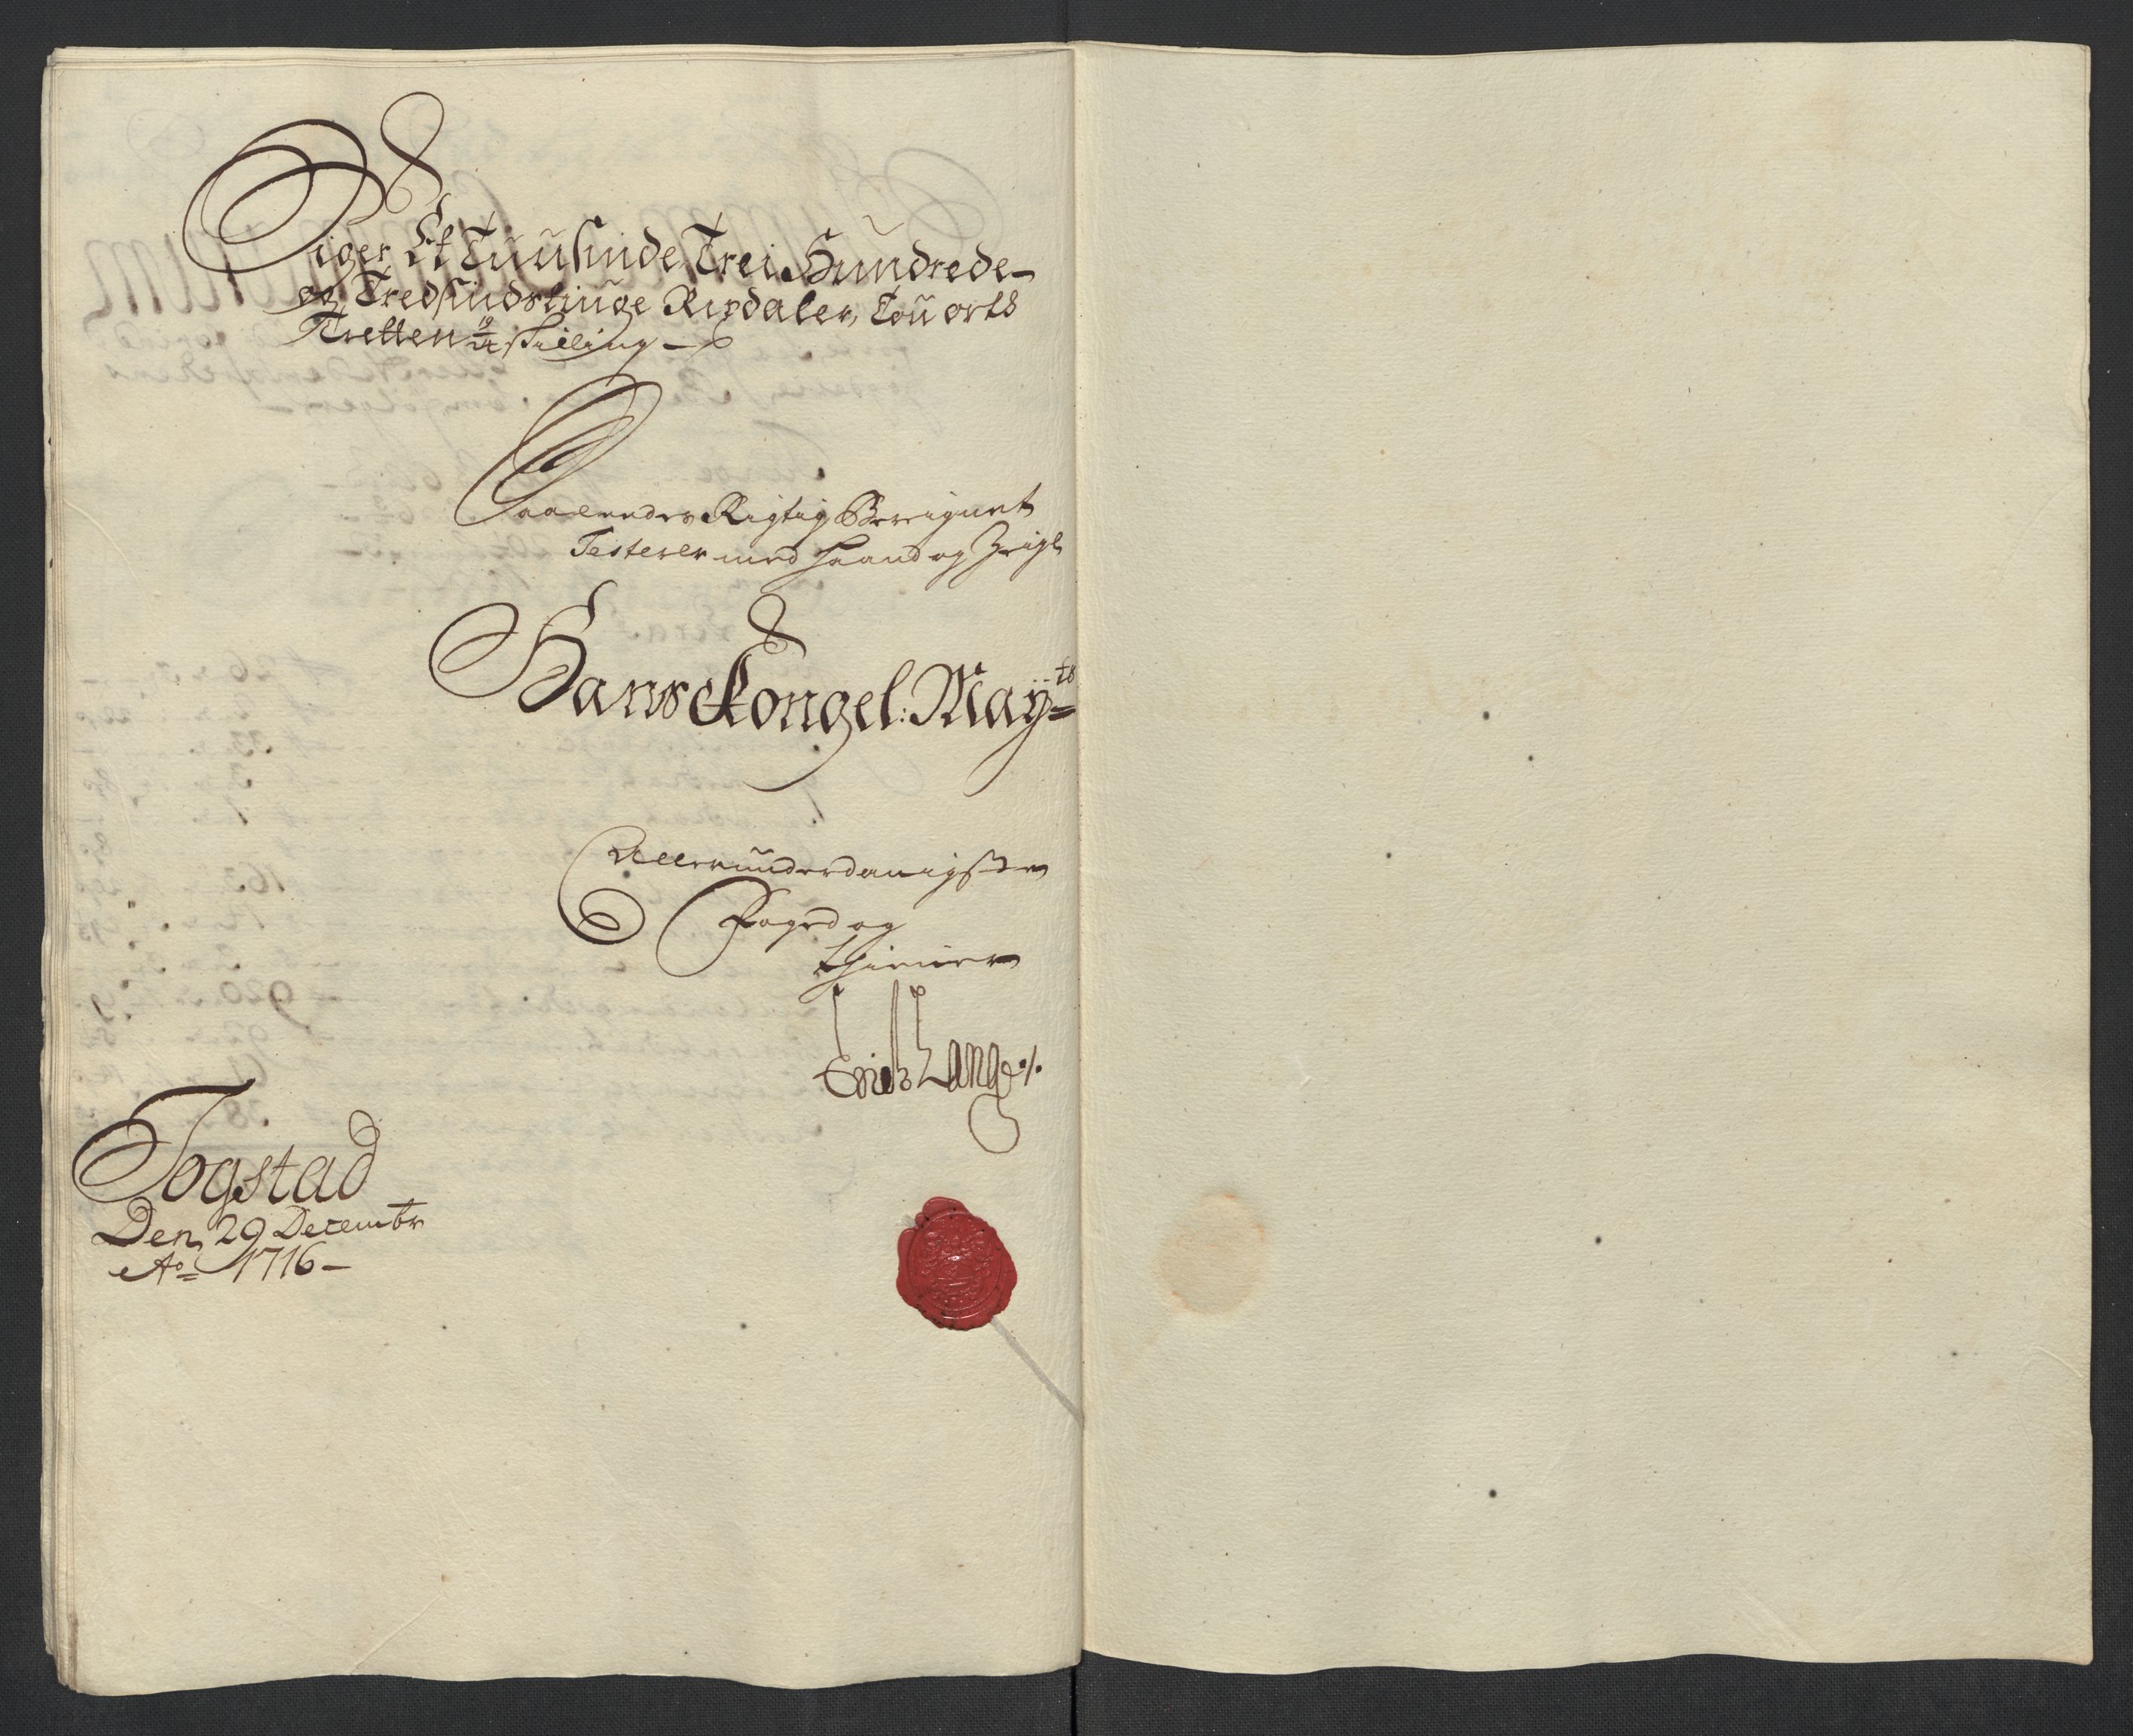 Siger Et Tuusinde Trei Hundrede
og Tredsindstiuge Rixdaler, Tou orts
Tretten 19/24 skilling
Saaleedes Rigtig Beregnet
Testerer med Haand og Zeigl
Hans Kongel: Mayts
Allerunderdanigste
Foged og
thiener
Erich Lange ./.
Togstad
Den 29 Decembr
Ao 1716